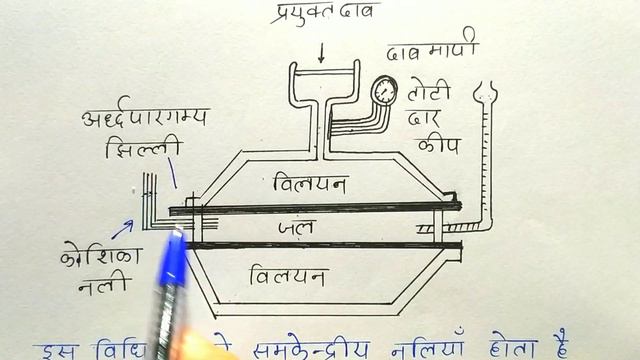 प्रयुक्त दाब
दाब मापी
तोटी
दार
कीप
अर्द्धपारगम्य
झिल्ली
विलयन
जल
कोशिका
नली
विलयन
इस विधि समकेन्द्रीय नलियाँ होता है